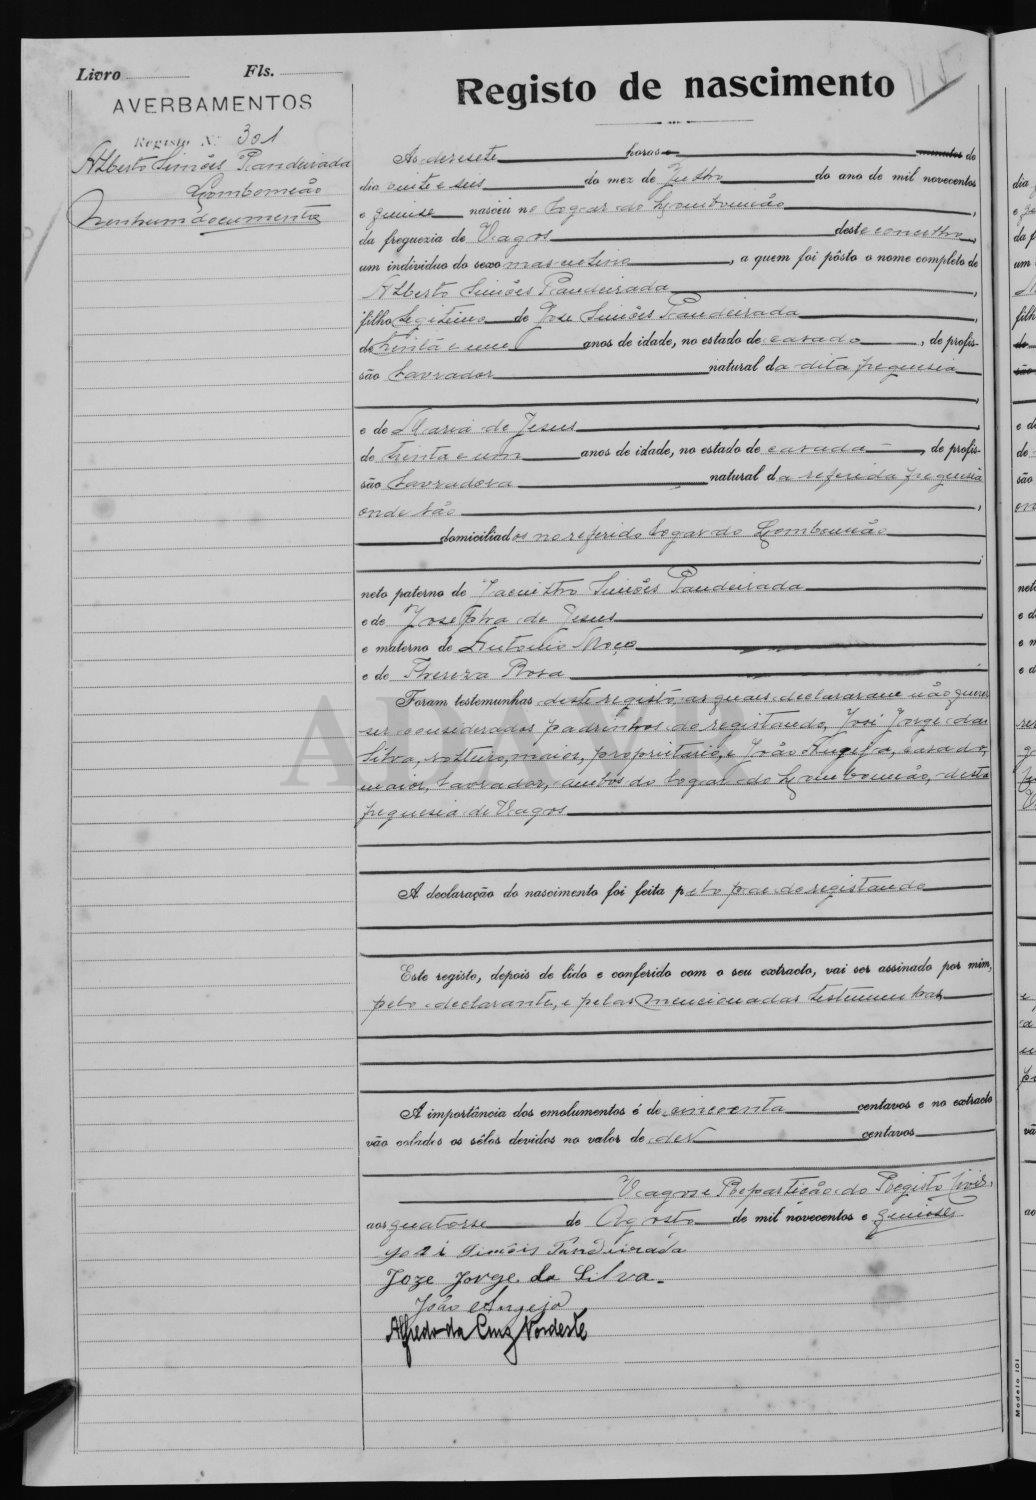 Livro Fls.
AVERBAMENTOS
Registo N.º 301
Alberto Simões Pandeirada
Lombomeão
Nenhum documento
Registo de nascimento
As dezesete horas e minutos do
dia vinte e seis do mez de do ano de mil novecentos
e quinse nasceu no logar do Lombomeão,
da freguezia de Vagos deste concelho,
um individuo do sexo masculino, a quem foi pôsto o nome completo de
Alberto Simões Pandeirada,
filho legitimo de Jose Simões Pandeirada,
de trinta e um anos de idade, no estado de casado, de profis-
são lavrador natural da dita freguesia
,
e de Maria de Jesus,
de trinta e um anos de idade, no estado de casada, de profis-
são lavradora natural da referida freguesia
onde são,
domiciliados no referido logar do Lombomeão
;
neto paterno de Simões Pandeirada
e de Josepha de Jesus,
e materno de Antonio Moço
e de Thereza Rosa.
Foram testemunhas deste registo, as quais declararam não querer
ser considerados padrinhos do registando, José Jorge da
Silva, solteiro, maior, proprietario, e João Angeja, casado,
maior, lavrador, ambos do logar do Lombomeão, desta
freguesia de Vagos
A declaração do nascimento foi feita pelo pae do registando
Este registo, depois de lido e conferido com o seu extracto, vai ser assinado por mim,
pelo declarante, e pelas mencionadas testemunhas
A importância dos emolumentos é de cincoenta centavos e no extracto
vão colados os sêlos devidos no valor de dez centavos
Vagos e Repartição do Registo Civil,
aos quatorse de Agosto de mil novecentos e
José Simões Pandeirada
Joze Jorge da Silva.
João Angeja
Alfredo da Cruz Nordeste
Modelo 101